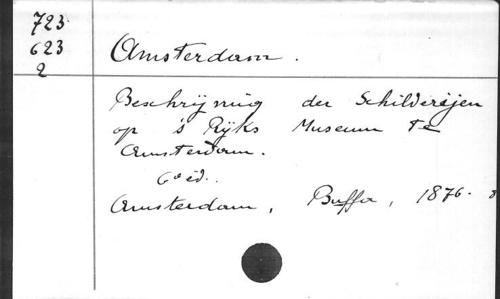 723
623
2
Amsterdam.
Beschrijving der Schilderijen
op 's Rijks Museum te
Amsterdam.
6e éd.
Amsterdam, Buffa, 1876.